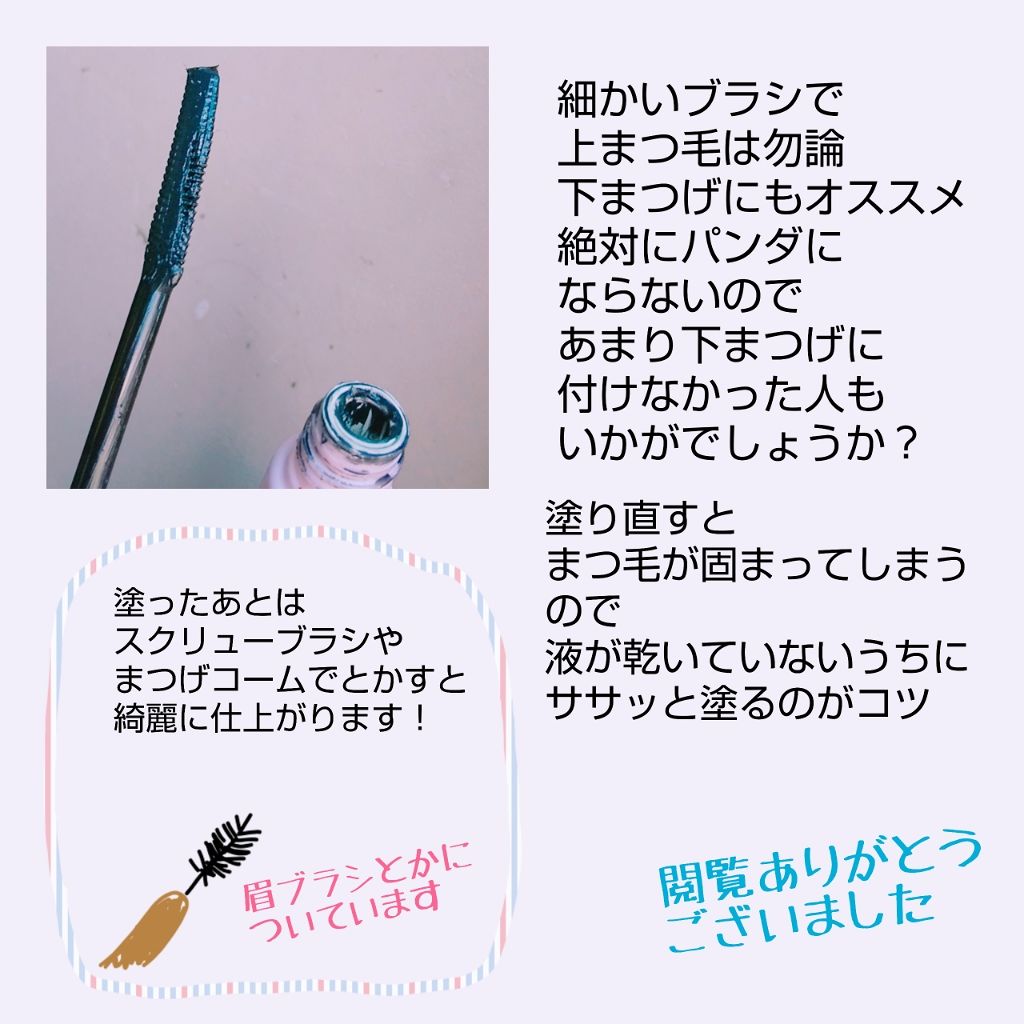 細かいブラシで
上まつ毛は勿論
下まつげにもオススメ
絶対にパンダに
ならないので
あまり下まつげに
付けなかった人も
いかがでしょうか？
塗り直すと
まつ毛が固まってしまう
ので
液が乾いていないうちに
ササッと塗るのがコツ
塗ったあとは
スクリューブラシや
まつげコームでとかすと
綺麗に仕上がります！
眉ブラシとかに
ついています
閲覧ありがとう
ございました